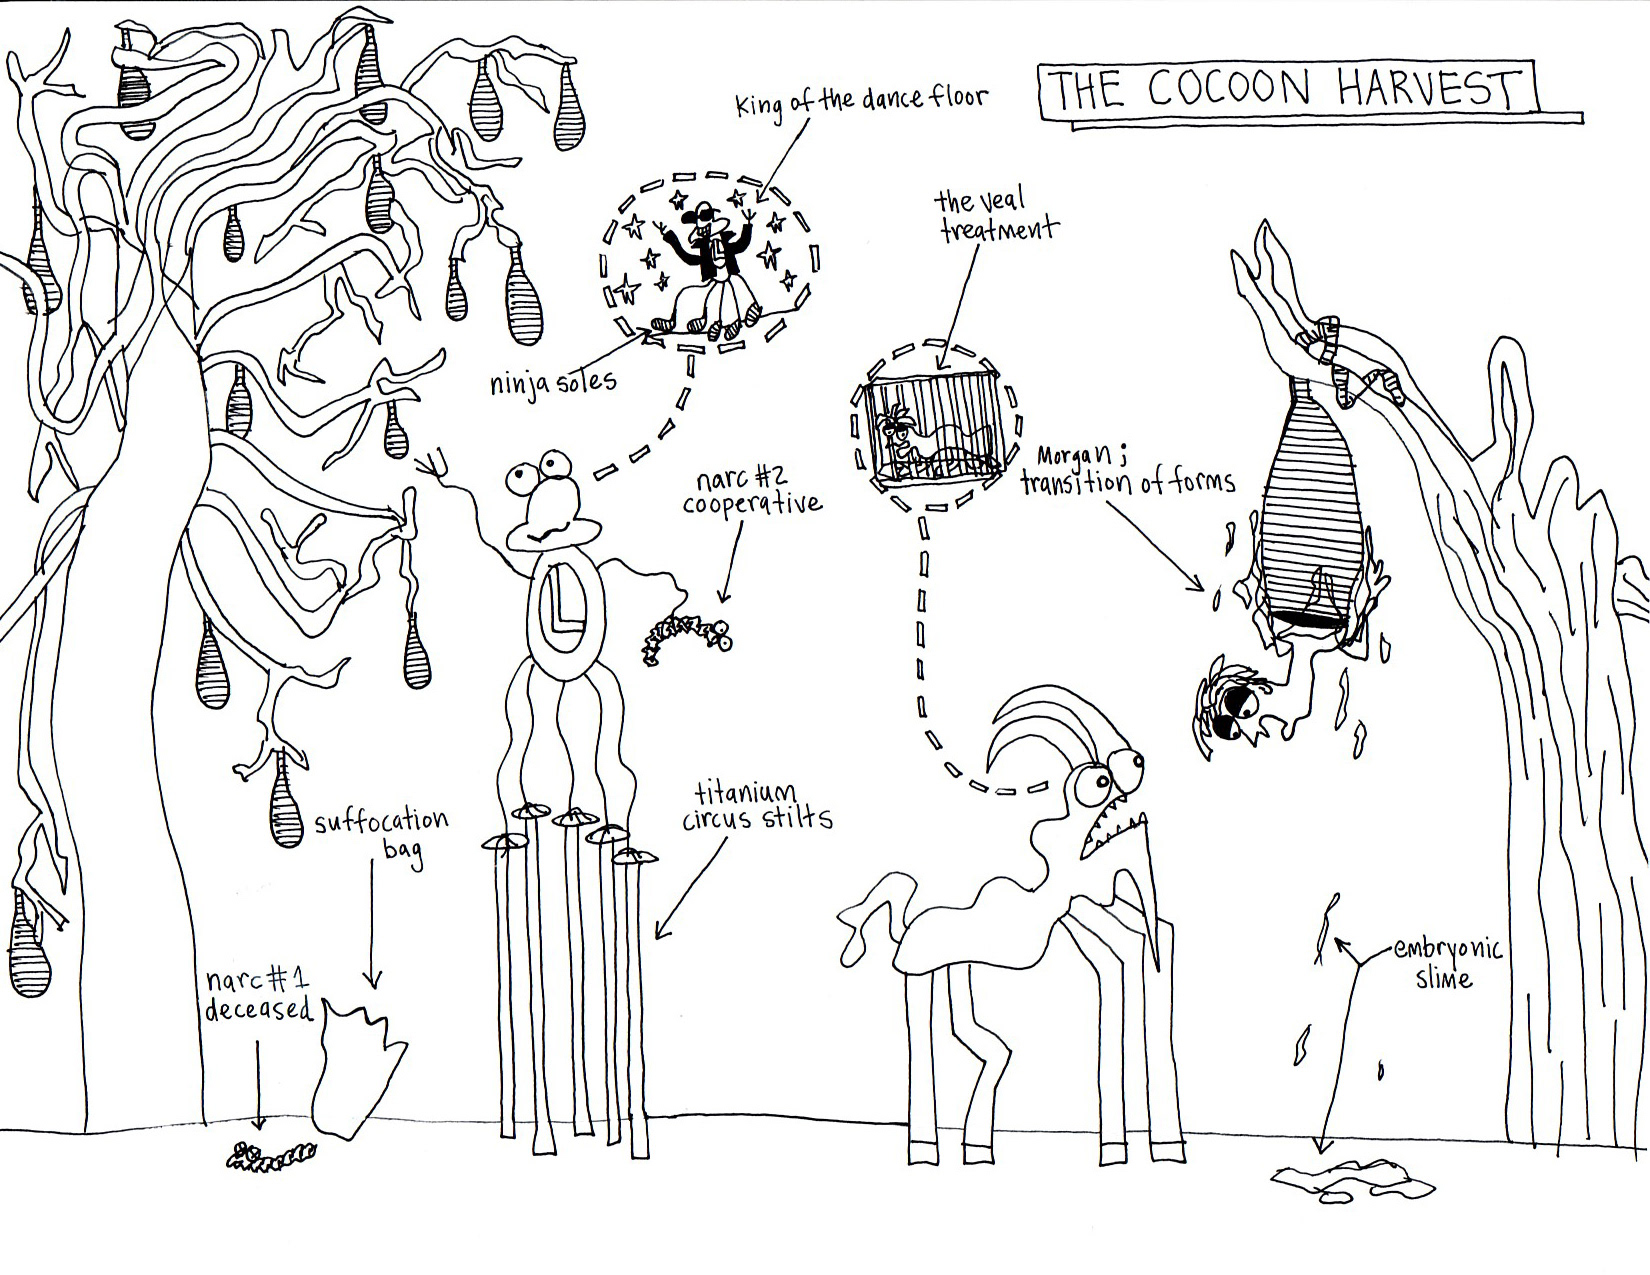 THE COCOON HARVEST
king of the dance floor
the veal
treatment
ninja soles
Morgan;
transition of forms
narc #2
cooperative
L
L
titanium
circus stilts
suffocation
bag
narc #1
deceased
embryonic
slime